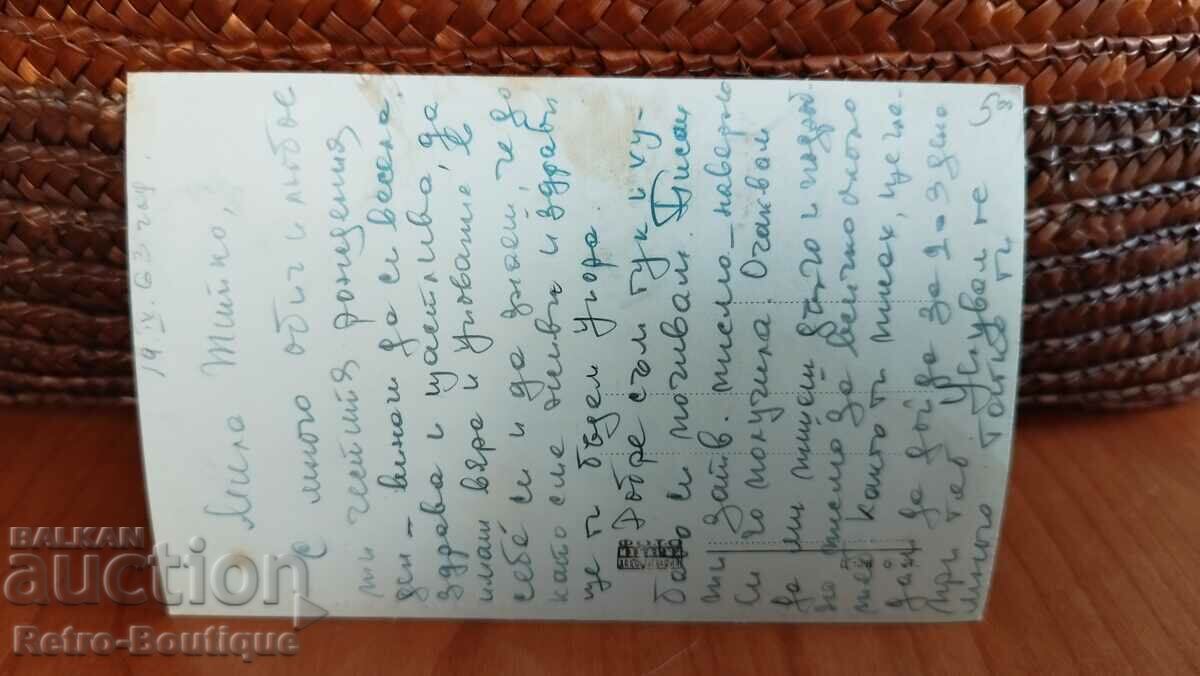 19. IX. 63 год.
Мила Тинко,
С много обич и любов
ти честитя рождения
ден – винаги да си весела,
здрава и щастлива, да
имаш вяра и упование в
себе си и да знаеш, че до
като сме живи и здрави
ще ти бъдем упора.
Добре съм тук и ху-
баво си почивам. Писах
ти затв. писмо – наверно
си го получила. Очаквам
да ми пишеш дълго и подроб-
но писмо за всичко около
теб. Както ти писах, ще гле-
дам да дойда за 2-3 дена
при теб Целувам те
много татко ти
BALKAN
auction
Retro-Boutique